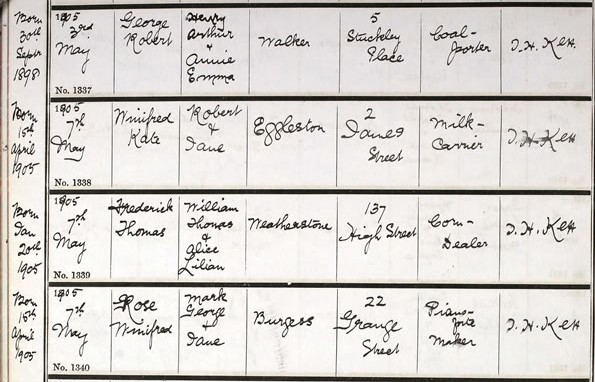 Born
30th
Septr
1898
1905
3rd
May
No. 1337
George
Robert
Henry
Arthur
&
Annie
Emma
Walker
5
Stuckley
Place
Coal-
porter
Born
15th
April
1905
1905
7th
May
No. 1338
Winifred
Kate
Robert
&
Jane
Eggleston
2
James
Street
Milk-
Carrier
Born
Jan
20th
1905
1905
7th
May
No. 1339
Frederick
Thomas
William
Thomas
&
Alice
Lilian
Weatherstone
137
High Street
Corn-
Dealer
Born
15th
April
1905
1905
7th
May
No. 1340
Rose
Winifred
Mark
George
&
Jane
Burgess
22
Grange
Street
Piano-
forte
Maker